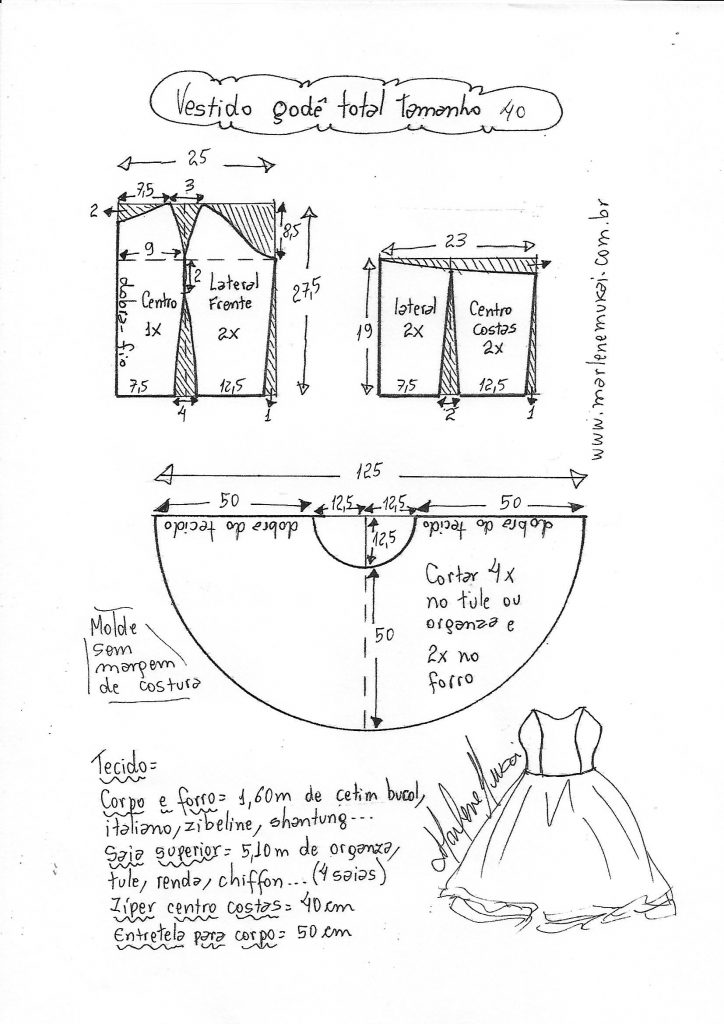 Vestido godê total tamanho 40
25
7,5
3
2
8,5
9
2
27,5
dobra-fio
Centro
1x
Lateral
Frente
2x
7,5
12,5
4
1
23
19
lateral
2x
Centro
Costas
2x
7,5
12,5
2
1
www.marlenemukai.com.br
125
50
12,5
12,5
50
dobra do tecido
dobra do tecido
12,5
50
Cortar 4x
no tule ou
organza e
2x no
forro
Molde
sem
margem
de costura
Tecido=
Corpo e forro= 1,60m de cetim bucol,
italiano, zibeline, shantung...
Saia superior= 5,10m de organza,
tule, renda, chiffon... (4 saias)
Zíper centro costas= 40cm
Entretela para corpo= 50cm
Marlene Mukai